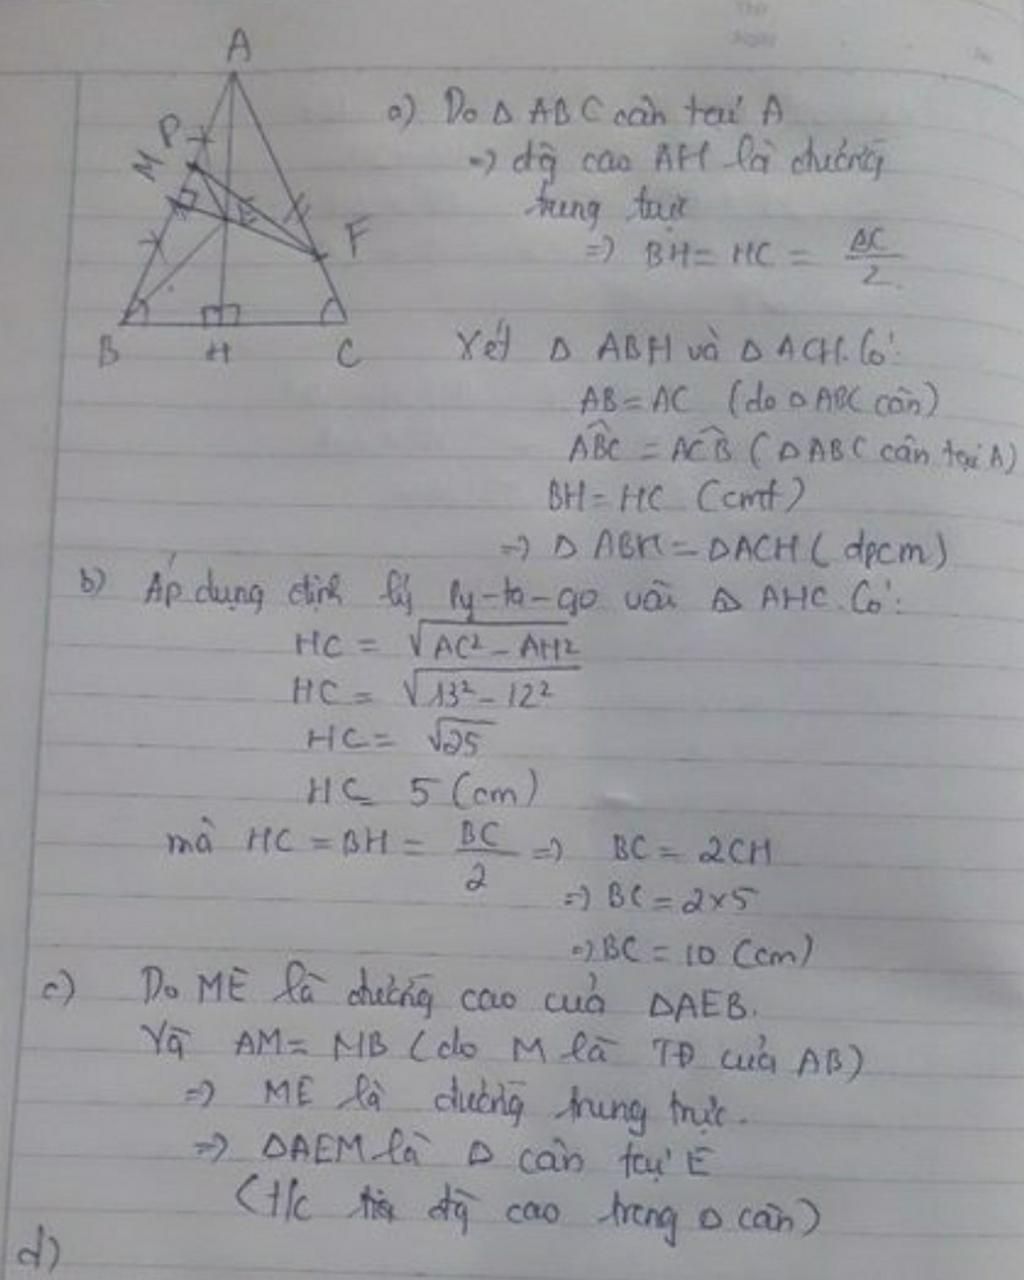 A
P
M
E
F
B H C
a) Do Δ ABC cân tại A
=> đg cao AH là đường
trung trực
=> BH = HC = BC/2
Xét Δ ABH và Δ ACH. Có:
AB = AC (do Δ ABC cân)
ABC = ACB (Δ ABC cân tại A)
BH = HC (cmt)
=> Δ ABH = ΔACH (dpcm)
b) Áp dụng định lý Py-ta-go với Δ AHC. Có:
HC = √AC² - AH²
HC = √13² - 12²
HC = √25
HC = 5 (cm)
mà HC = BH = BC/2 => BC = 2CH
=> BC = 2×5
=> BC = 10 (cm)
c) Do ME là đường cao của ΔAEB.
Và AM = MB (do M là TĐ của AB)
=> ME là đường trung trực.
=> ΔAEM là Δ cân tại E
(t/c đg cao trong Δ cân)
d)